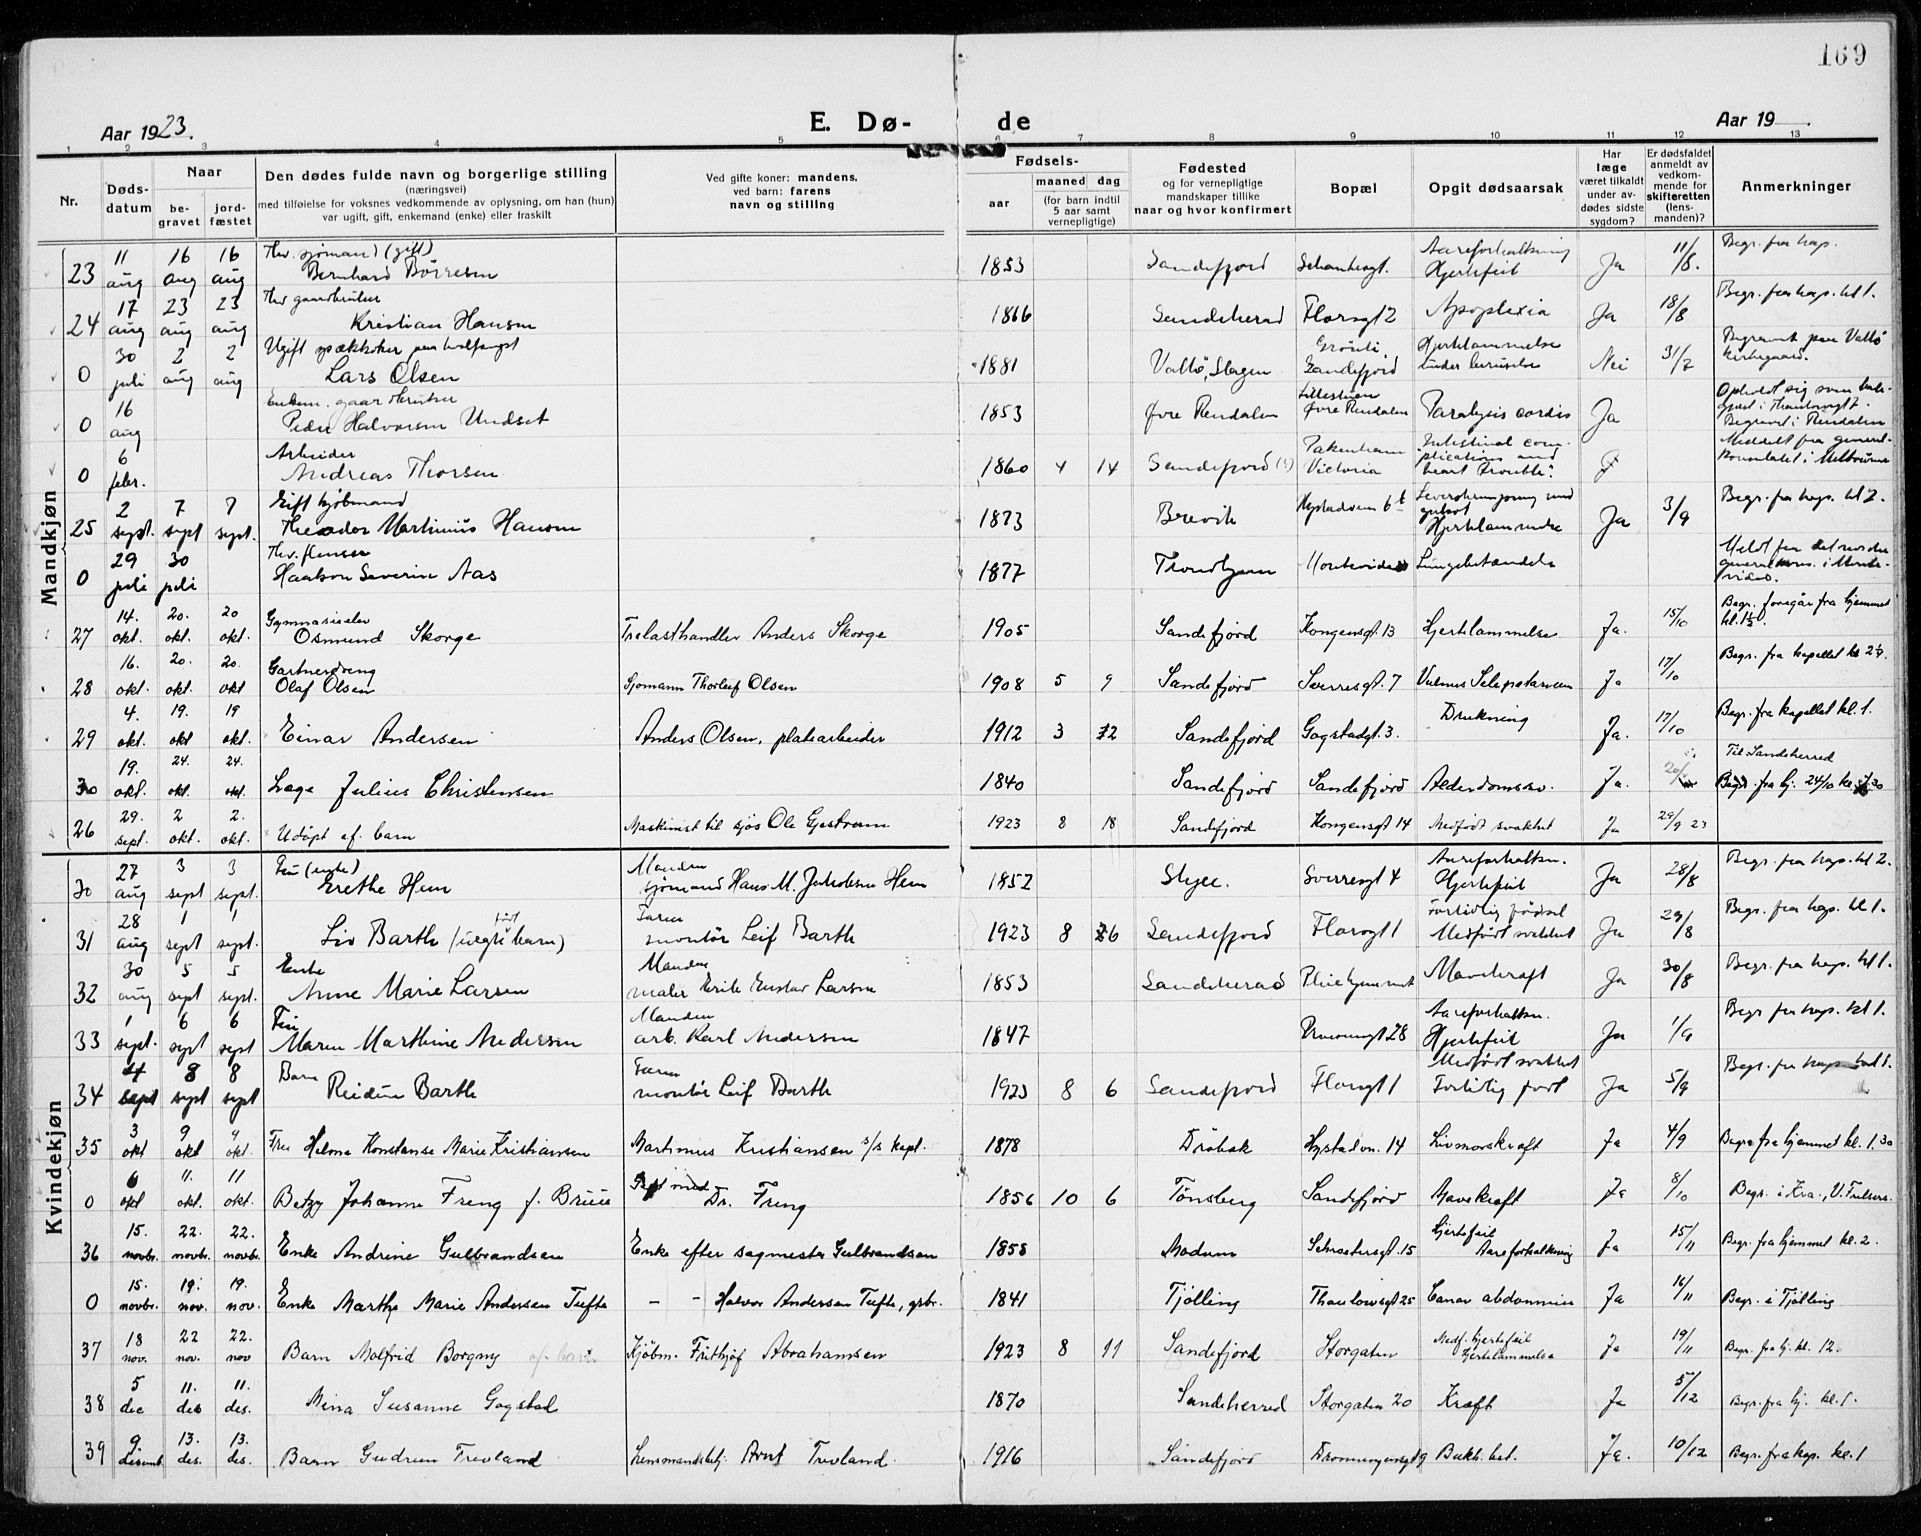 169
Aar 1923.
E. Dø-
de
Aar 19
1 2 3 4 5 6 7 8 9 10 11 12 13
Nr.
Døds-
datum
Naar
be-
gravet
jord-
fæstet
Den dødes fulde navn og borgerlige stilling
(næringsvei)
med tilføielse for voksnes vedkommende av oplysning, om han (hun)
var ugift, gift, enkemand (enke) eller fraskilt
Ved gifte koner: mandens,
ved barn: farens
navn og stilling
Fødsels-
aar
maaned dag
(for barn indtil
5 aar samt
vernepligtige)
Fødested
og for vernepligtige
mandskaper tillike
naar og hvor konfirmert
Bopæl
Opgit dødsaarsak
Har
læge
været tilkaldt
under av-
dødes sidste
sygdom?
Er dødsfaldet
anmeldt av
vedkom-
mende for
skifteretten
(lens-
manden)?
Anmerkninger
Mandkjøn
23 11 aug 16 aug 16 aug Fhv. sjømand (gift) Bernhard Børresen 1853 Sandefjord Aareforkalkning Hjertefeil Ja 11/8. Begr. fra kap.
24 17 aug 23 aug 23 aug Fhv gaardbruker Kristian Hansen 1866 Sandeherad Florsgt 2 Apoplexia Ja 18/8 Begr. fra kap. kl 1.
0 30 juli 2 aug 2 aug Ugift spækkoker paa hvalfangst Lars Olsen 1881 Vallø, Slagen Sandefjord Hjertelammelse under beruselse Nei 31/7 Begravet paa Vallø kirkegaard.
0 16 aug Enkem. gaardbruker Peder Halvorsen Undset 1853 Øvre Rendalen Øvre Rendalen Paralysis cordis Ja Opholdt sig som bad- gjest i Thaulowsgt 7. Begravet i Rendalen
0 6 febr. Arbeider Andreas Thorsen 1860 4 14 Sandefjord (?) Pakenham Victoria "Intestinal com- plications and heart trouble". Meddelt fra general- konsulatet i Melbourne
25 2 sept. 7 sept 7 sept. Gift kjøbmand Theodor Martinius Hansen 1873 Brevik Hystadveien 6 Hjertelammelse Ja 3/9 Begr. fra kap. kl 2.
0 29 juli 30 juli Haakon Severin Aas 1877 Trondhjem Montevideo Lungebetændelse
27 14. okt. 20. okt. 20 okt. Gymnasieelev Osmund Skorge Trelasthandler Anders Skorge 1905 Sandefjord Kongensgt. 13 Hjertelammelse Ja. 15/10 Begr. foregår fra hjemmet kl. 1½.
28 16. okt. 20. okt. 20. okt Gartnerdreng Olaf Olsen Sjømann Thorleif Olsen 1908 5 9 Sandefjord Sverresgt. 7 Ja 17/10 Begr. fra kapellet kl
29 4. okt. 19. okt 19 okt. Einar Andersen Anders Olsen, platearbeider 1912 3 Sandefjord Gogstadgt. 3. Drukning Ja. 17/10 Begr. fra kapellet kl. 1.
30 19. okt. 24. okt. 24. okt. Lage Julius Christensen 1840 Sandefjord Sandefjord Alderdomssv. Ja. Til Sandeherred Begr. fra hj. 24/10 kl.
26 29. sept. 2 okt. 2. okt. Udøpt af. barn Maskinist til sjøs Ole Gjestrum 1923 8 18 Sandefjord Kongensgt 14 Medfødt svakhet Ja 29/9 23
Kvindekjøn
30 27 aug 3 sept 3 sept. Fru (enke) Grethe Hem Manden sjømand Hans M. Jakobsen Hem 1852 Sverresgt 4 Aareforkalkn. Hjertefeil Ja 28/8 Begr. fra kap. kl 2.
31 28 aug 1 sept 1 sept. Liv Barth (uegte født barn) Faren montør Leif Barth 1923 8 26 Sandefjord Florsgt 1 Fortidlig fødsel Medfødt svakhet Ja 29/8 Begr. fra kap. kl 1.
32 30 aug 5 sept 5 sept. Enke Anne Marie Larsen Manden maler Erik Gustav Larsen 1853 Sandeherad Pleiehjemmet Mavekræft Ja 30/8 Begr. fra kap. kl 1.
33 1 sept. 6 sept 6 sept Fru Maren Marthine Andersen Manden arb. Karl Andersen 1847 28 Aareforkalkn. Hjertefeil Ja 1/9 Begr fra kap. kl 1.
34 4 sept 8 sept 8 sept Barn Reidun Barth Faren montør Leif Barth 1923 8 6 Sandefjord Florsgt 1 Medfødt svakhet Fortidlig født Ja 5/9 Begr. fra kap kl 1.
35 3 okt 9 okt 9 okt. Fru Helma Konstanse Marie Kristiansen Martinus Kristiansen s/s kapt. 1878 Drøbak Hystadvn. 14 Livmorskræft Ja 4/9 Begr. fra hjemmet kl. 1.30
0 6 okt 11. okt. 11 okt. Betzy Johanne Freng f. Bruus Gift med Dr. Freng 1856 10 6 Tønsberg Sandefjord Mavekræft Ja 8/10 Begr. i Kra., V. Frelsers.
36 15. novbr. 22. novbr. 22. novbr. Enke Andrine Gulbrandsen Enke efter sagmester Gulbrandsen 1858 Modum Schrøtersgt. 15 Hjertefeil Aareforkalkning Ja 15/11 Begr. fra hjemmet kl. 2.
0 15. novbr. 19. nov. 19. nov. Enke Marthe Marie Andersen Tufte — - Halvor Andersen Tufte, grbr. 1841 Tjølling Thaulowsgt 25 Cancer abdominis Ja 16/11 Begr. i Tjølling
37 18 nov. 22 nov. 22. nov Barn Molfrid Borgny Kjøbm. Frithjof Abrahamsen 1923 8 11 Sandefjord Storgaten Medf. hjertefeil Hjertelammelse Ja 19/11 Begr. fra hj. kl. 12.
38 5 dec 11. des 11. des. Mina Susanne Gogstad 1870 Sandeherred Storgaten 20 Kræft Ja 5/12 Begr. fra hj. kl. 1.
39 9. desemb. 13. des. 13. des. Barn Gudrun Trevland Lensmandsbetj. Arnt Trevland. 1916 Sandefjord Dronningensgt 9 Bukh. bet. Ja. 10/12 Begr. fra kap. kl. 1